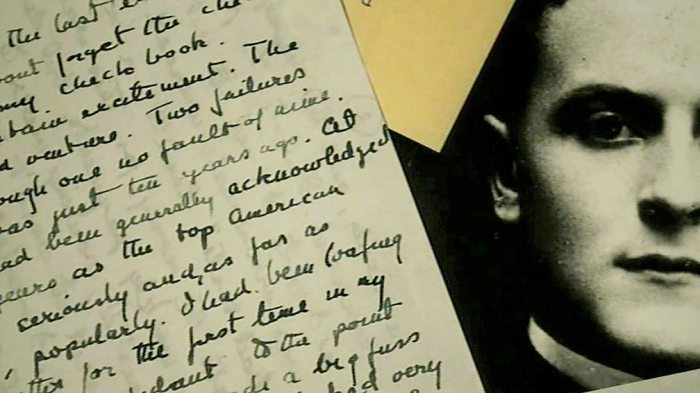 the last
out forget the che
my check book.
bain excitement. The
d venture. Two failures
ough one no fault of mine.
was just ten years ago. At
had been generally acknowledged
years as the top American
seriously and, as far as
popularly. I had been loafing
for the first time in my
to the point
a big fuss
had very